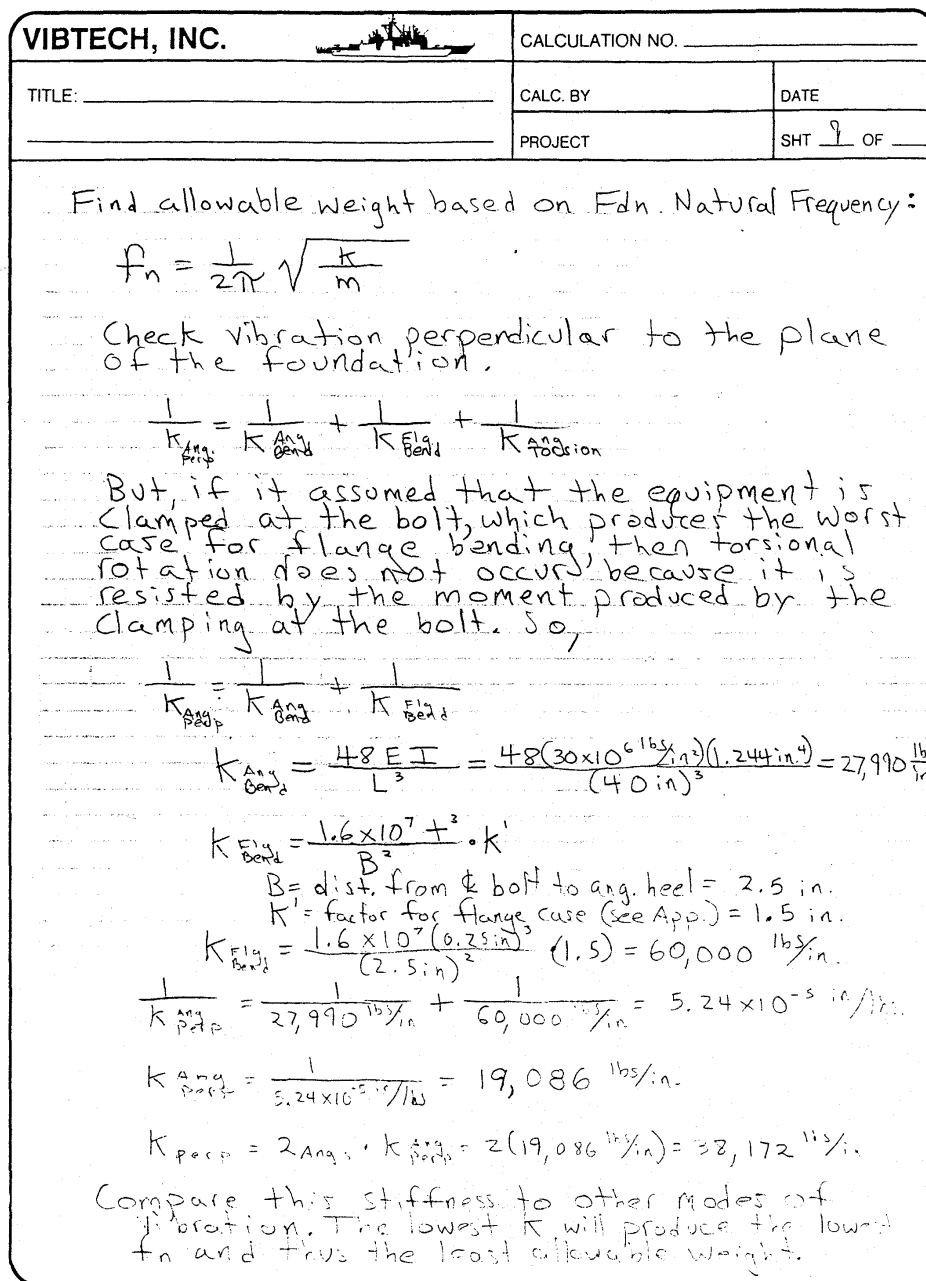 VIBTECH, INC.
CALCULATION NO.
TITLE:
CALC. BY
DATE
PROJECT
SHT 9 OF
Find allowable weight based on Fdn. Natural Frequency:
fn = 1/2π √k/m
Check vibration perpendicular to the plane
of the foundation.
1/K Ang. Perp = 1/K Ang Bend + 1/K Flg Bend + 1/K Ang Torsion
But, if it assumed that the equipment is
clamped at the bolt, which produces the worst
case for flange bending, then torsional
rotation does not occurs because it is
resisted by the moment produced by the
clamping at the bolt. So,
1/K Ang Perp = 1/K Ang Bend + 1/K Flg Bend
K Ang Bend = 48EI/L³ = 48(30x10⁶ lbs/in²)(1.244in⁴)/(40in)³ = 27,990 lb/in
K Flg Bend = 1.6x10⁷ t³/B² • K'
B = dist. from ℄ bolt to ang. heel = 2.5 in.
K' = factor for flange case (see App.) = 1.5 in.
K Flg Bend = 1.6x10⁷(0.25in)³/(2.5in)² (1.5) = 60,000 lbs/in.
1/K Ang Perp = 1/27,990 lbs/in + 1/60,000 lbs/in = 5.24x10⁻⁵ in/lbs.
K Ang Perp = 1/5.24x10⁻⁵ in/lbs = 19,086 lbs/in.
K perp = 2 Ang. • K Ang Perp = 2(19,086 lbs/in) = 38,172 lbs/i.
Compare this stiffness to other modes of
vibration. The lowest K will produce the lowest
fn and thus the least allowable weight.